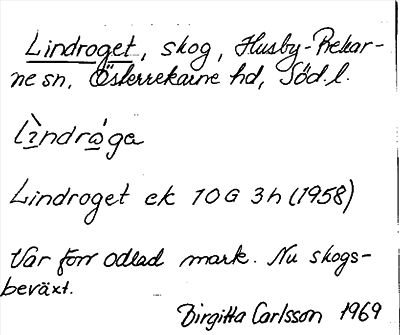 Lindroget, skog, Husby-Rekar-
ne sn, Österrekarne hd, Söd.l.
Lìndrǻga
Lindroget ek 10 G 3h (1958)
Var förr odlad mark. Nu skogs-
beväxt.
Birgitta Carlsson 1969